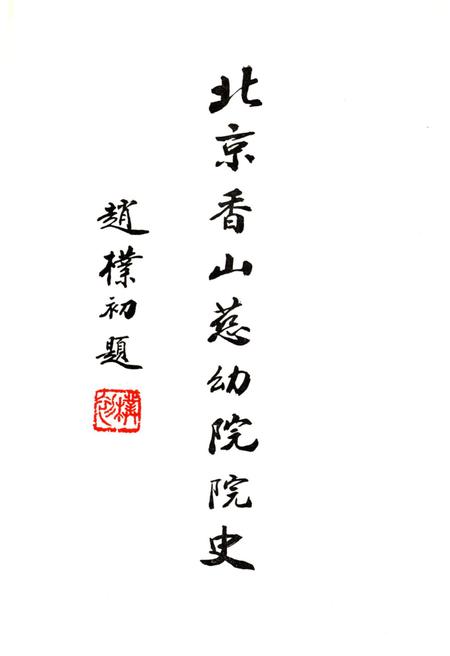 北京香山慈幼院院史
趙樸初題
樸初